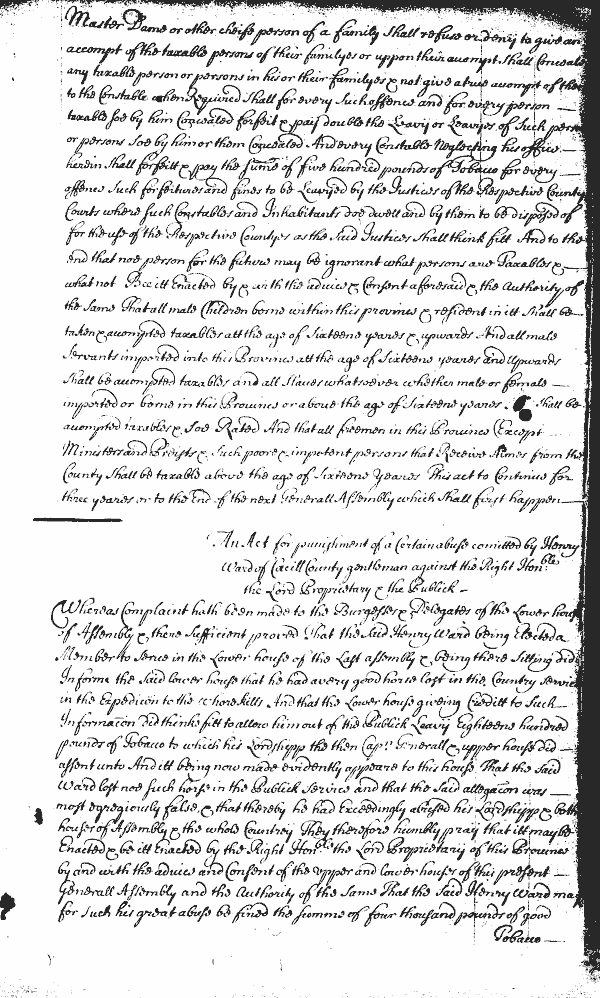 Master Dame or other cheife person of a family Shall refuse or deny to give an
accompt of the taxable persons of their familyes or uppon their accompt Shall Conceale
any taxable person or persons in his or their familyes & not give a true accompt of them
to the Constable when Required Shall for every Such offence and for every person
taxable soe by him Concealed forfeit & pay double the Leavy or Leavyes of Such person
or persons Soe by him or them Concealed And every Constable Neglecting his office
herein Shall forfeitt & pay the Sume of five hundred pounds of Tobacco for every
offence Such forfeitures and fines to be Leavyed by the Justices of the Respective County
Courts where such Constables and Inhabitants doe dwell and by them to be disposed of
for the use of the Respective Countyes as the Said Justices Shall think fitt And to the
end that noe person for the future may be ignorant what persons are Taxables &
what not Bee itt Enacted by & with the advice & Consent aforesaid & the Authority of
the Same That all male Children borne within this province & resident in itt Shall be
taken & accompted taxables att the age of Sixteene yeares & upwards And all male
Servants imported into this Province att the age of Sixteene yeares and Upwards
Shall be accompted taxables and all Slaves whatsoever whether male or female
imported or borne in this Province or above the age of Sixteene yeares Shall be
accompted taxables & Soe Rated And that all freemen in this Province Except
Ministers and Preists & Such poore & impotent persons that Receive Almes from the
County Shall be taxable above the age of Sixteene Yeares This act to Continue for
three yeares or to the End of the next Generall Assembly which Shall first happen
An Act for punishment of a Certain abuse comitted by Henry
Ward of Cæcill County gentleman against the Right Honble
the Lord Proprietary & the Publick
Whereas Complaint hath been made to the Burgesses & Delegates of the Lower house
of Assembly & there Sufficient proved That the Said Henry Ward being Elected a
Member to Serve in the Lower house of the Last assembly & being there Sitting did
Informe the Said lower house that he had a very good horse lost in the Country Service
in the Expedicon to the Whorekills And that the Lower house giveing Creditt to Such
Informacon did thinke fitt to allow him out of the Publick Leavy Eighteene hundred
pounds of Tobacco to which his Lordshipp the then Capn Generall & upper house did
assent unto And itt being now made evidently appeare to this house That the Said
Ward lost noe Such horse in the Publick Service and that the Said allegacon was
most egregiously false & that thereby he had Exceedingly abused his Lordshipp & both
houses of Assembly & the whole Countrey They therefore humbly pray that itt may be
Enacted & be itt Enacted by the Right Honble the Lord Proprietary of this Province
by and with the advice and Consent of the upper and lower houses of this present
Generall Assembly and the Authority of the Same That the Said Henry Ward may
for Such his great abuse be fined the Summe of four thousand pounds of good
Tobacco